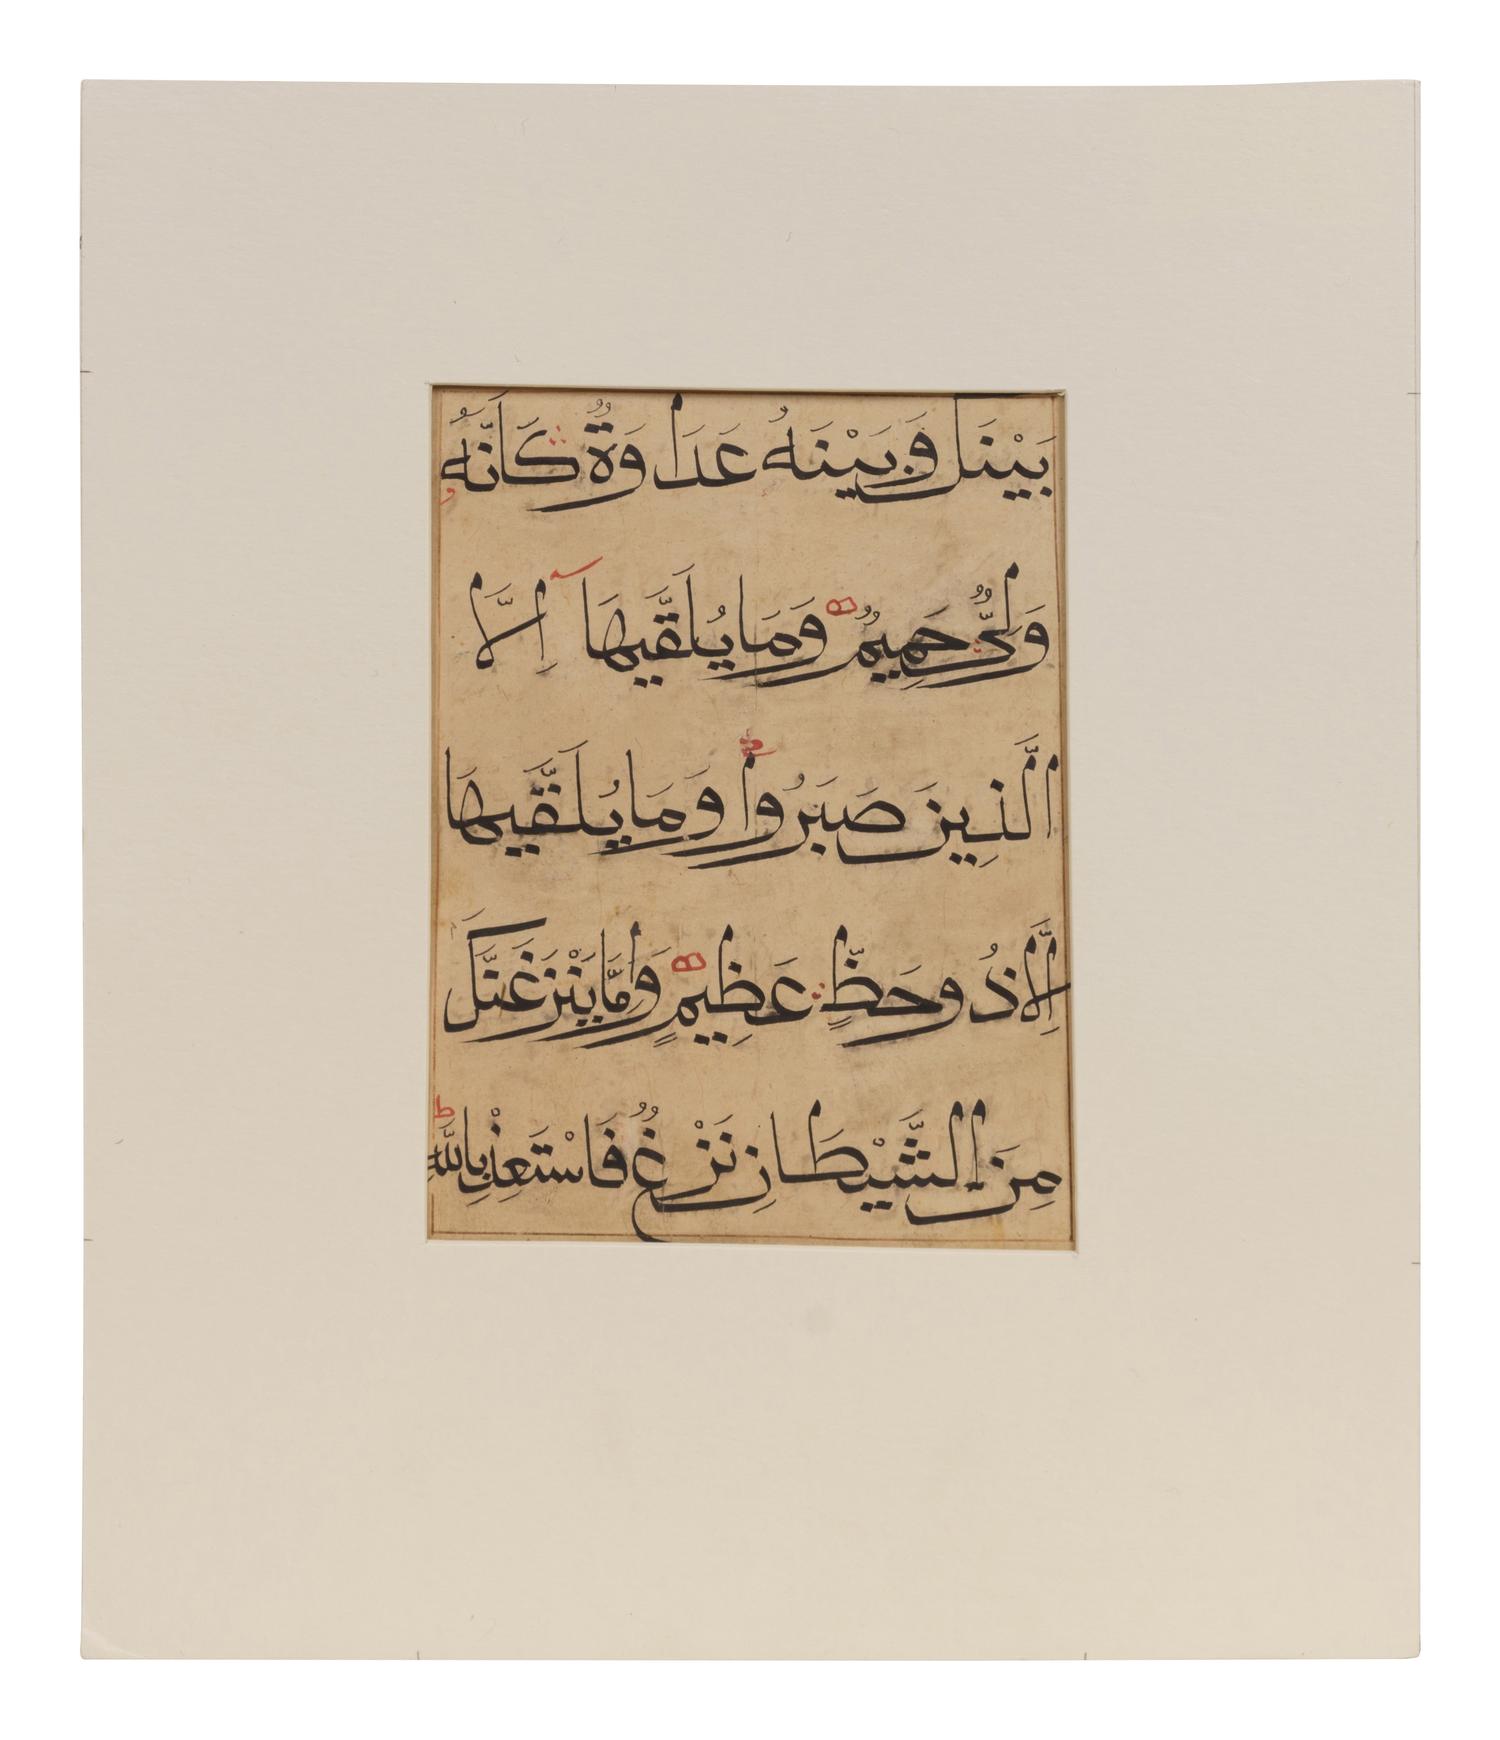 بَيْنَكَ وَبَيْنَهُ عَدَاوَةٌ كَأَنَّهُ
وَلِيٌّ حَمِيمٌ وَمَا يُلَقَّيهَا اِلَّا
الَّذِينَ صَبَرُوا وَمَا يُلَقَّيهَا
اِلَّا ذُو حَظٍّ عَظِيمٍ وَاِمَّا يَنْزَغَنَّكَ
مِنَ الشَّيْطَانِ نَزْغٌ فَاسْتَعِذْ بِاللَّهِ